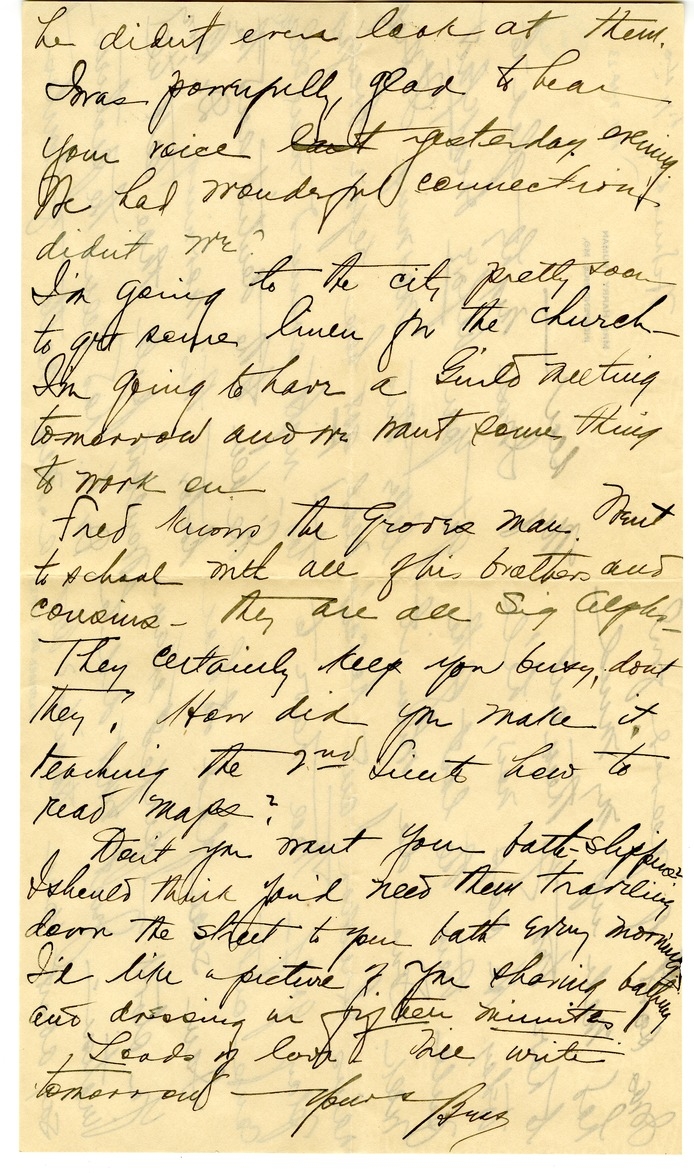 he didn't even look at them.
I was powerfully glad to hear
your voice last yesterday evening.
We had wonderful connection,
didn't we?
I'm going to the city pretty soon
to get some linen for the church—
I'm going to have a Guild meeting
tomorrow and we want some thing
to work on—
Fred knows the Groves man. Went
to school with all of his brothers and
cousins – they are all Sig Alphs—
They certainly keep you busy, dont
they? How did you make it
teaching the 2nd Lieuts how to
read maps?
Don't you want your bath-slippers?
I should think you'd need them traveling
down the street to your bath every morning
I'd like a picture of you shaving bathing
and dressing in fifteen minutes
Loads of love & will write
tomorrow — Yours